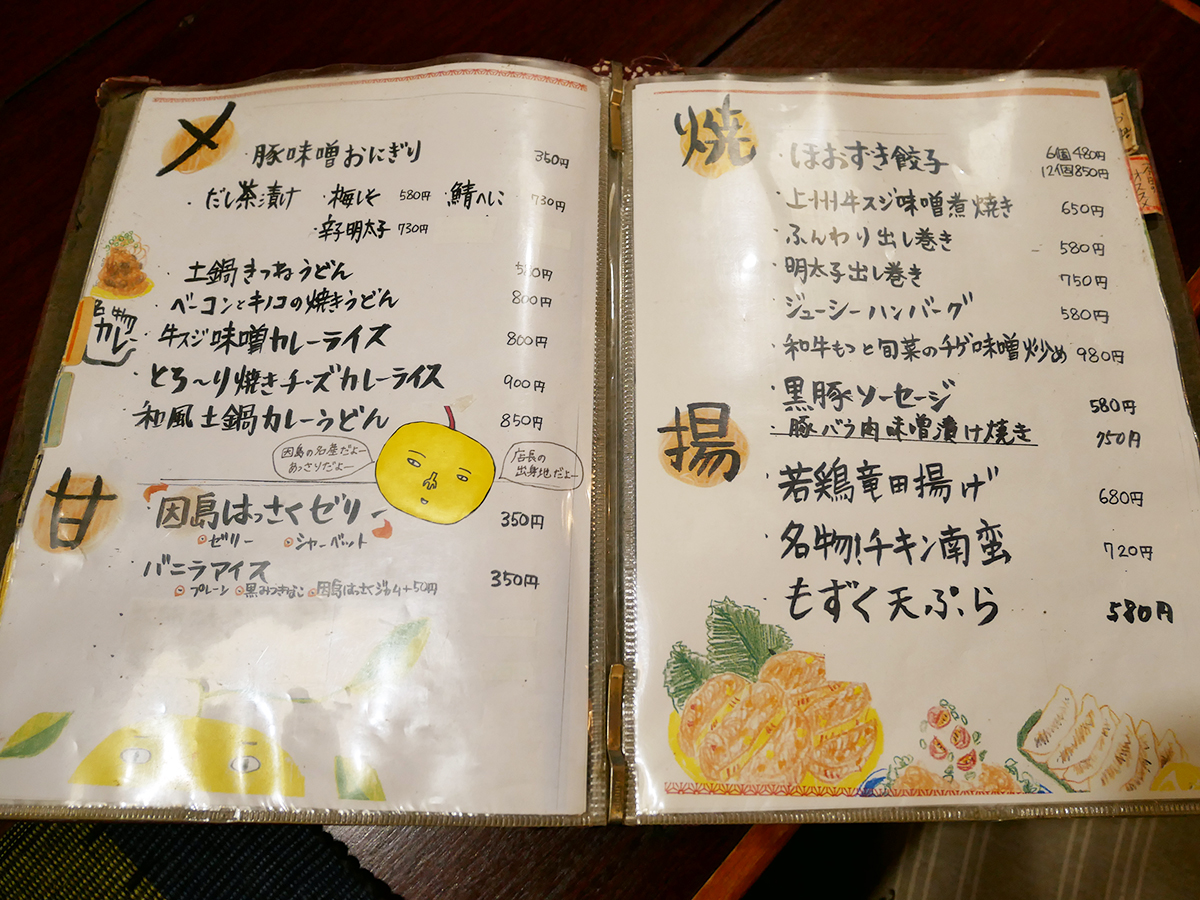 〆
・豚味噌おにぎり 350円
だし茶漬け ・梅しそ 580円 ・鯖へしこ 730円
・辛子明太子 730円
・土鍋きつねうどん 580円
・ベーコンとキノコの焼きうどん 800円
名物カレー
・牛スジ味噌カレーライス 800円
・とろ〜り焼きチーズカレーライス 900円
・和風土鍋カレーうどん 850円
因島の名産だよー
あっさりだよー
店長の
出身地だよー
甘
・因島はっさくゼリー 350円
ゼリー シャーベット
・バニラアイス 350円
プレーン 黒みつきなこ 因島はっさくジャム+50円
焼
・ほおずき餃子 6個480円
12個850円
・上州牛スジ味噌煮焼き 650円
・ふんわり出し巻き 580円
・明太子出し巻き 750円
・ジューシーハンバーグ 580円
・和牛もつと旬菜のチゲ味噌炒め 980円
・黒豚ソーセージ 580円
・豚バラ肉味噌漬け焼き 750円
揚
・若鶏竜田揚げ 680円
・名物!チキン南蛮 720円
・もずく天ぷら 580円
オススメ